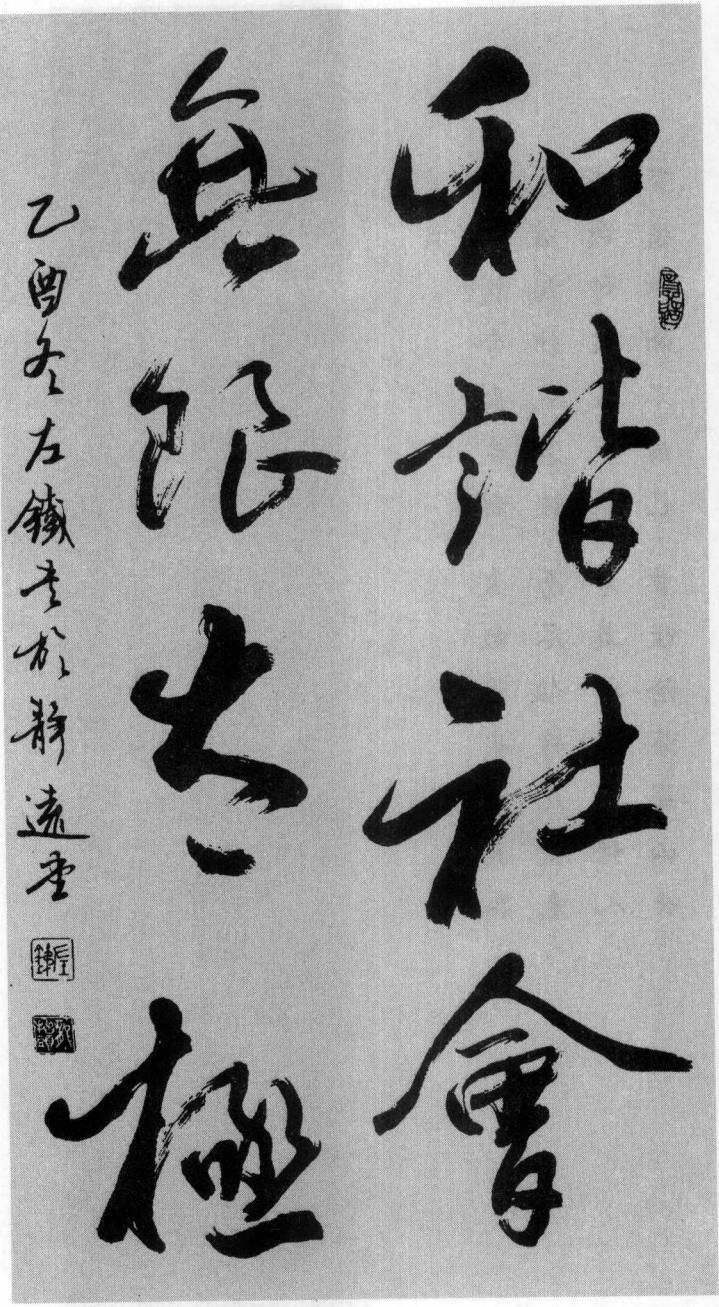 和諧社會
無限太極
乙酉冬左鐵書於靜遠堂